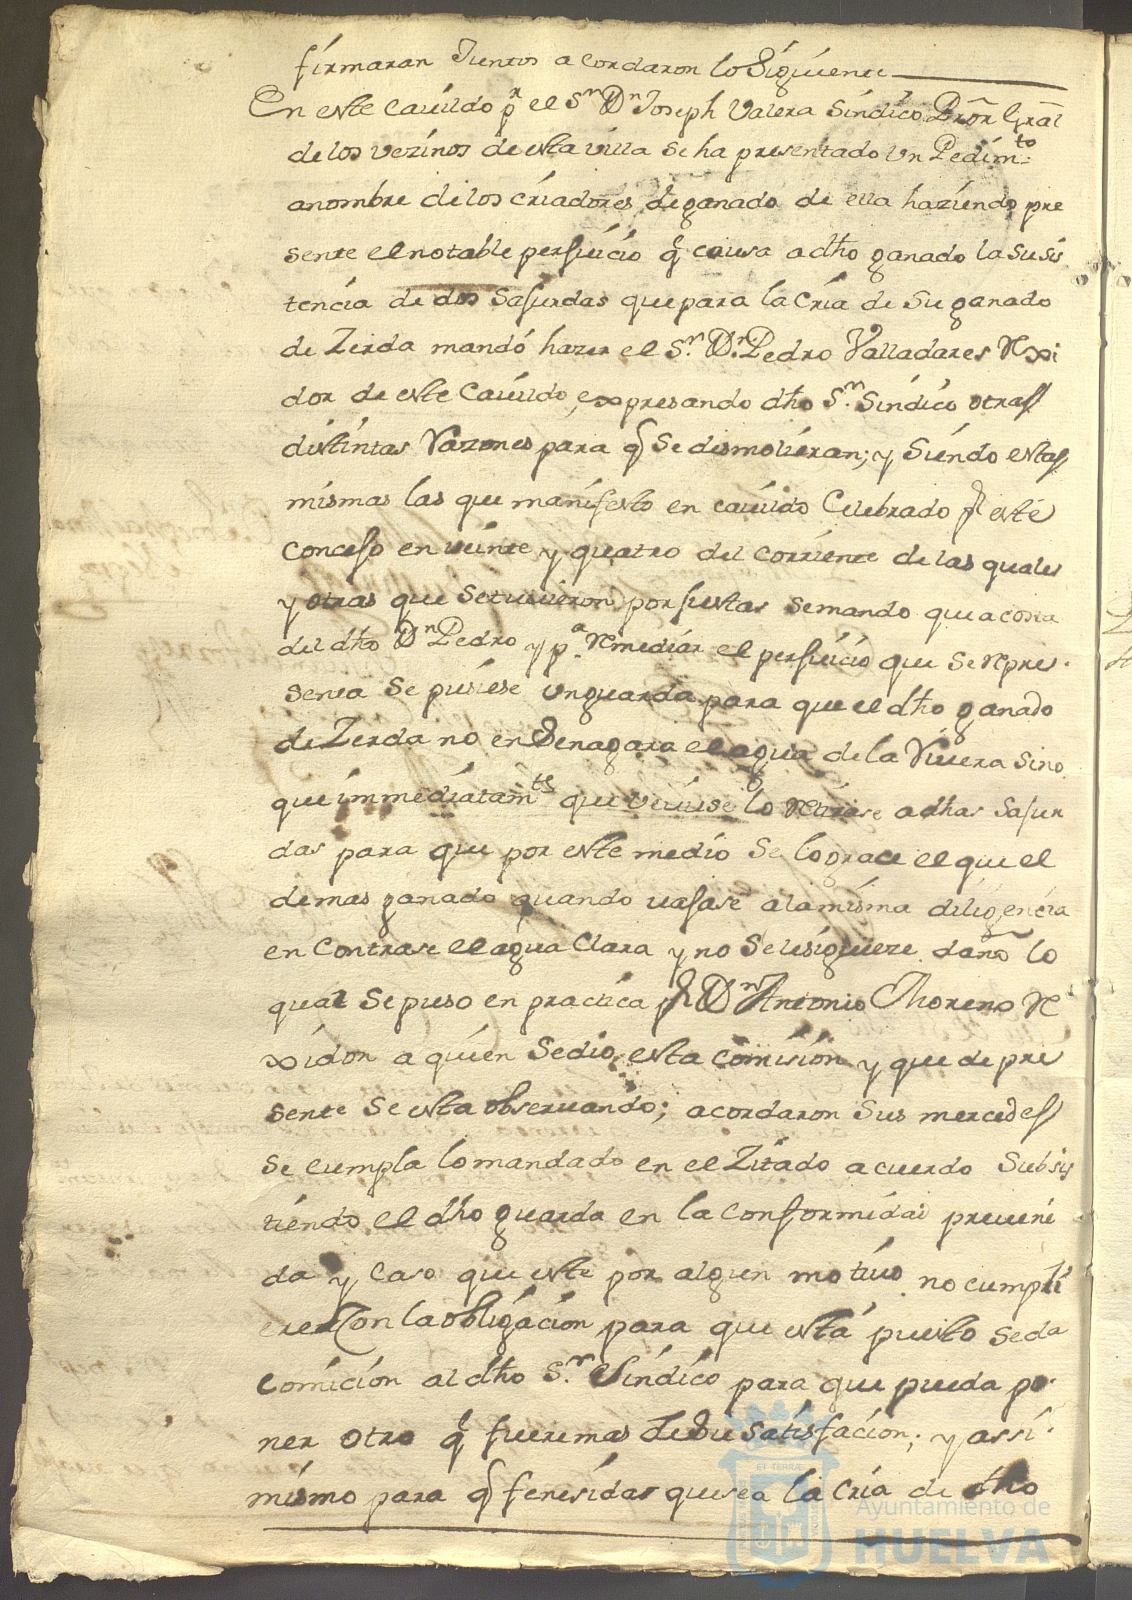 firmaran Juntos acordaron lo Siguiente
En este Cavildo pr el Sr Dn Joseph Valera Síndico Pror Gral
de los vezinos de esta villa se ha presentado un Pedimto
anombre de los criadores de ganado de ella haziendo pre
sente el notable perjuicio q causa a dho ganado la susis
tencia de dos Sajurdas que para la Cria de su ganado
de Zerda mandó hazer el Sr Dn Pedro Valladares Rexi
dor de este Cavildo, expresando dho Sr Síndico otras
distintas Razones para q Se dismolieran; y Siendo estas
mismas las que manifesto en cavildo Celebrado pr este
Consejo en veinte y quatro del corriente de las quales
y otras que Setuvieron por justas Semando que a costa
del dho Dn Pedro y pa Remediar el perjuicio que Se Repre
senta Se pusiese un guarda para que el dho ganado
de Zerda no enSenagara el agua de la Rivera sino
que immediatamte que veviese lo Retirase a dhas Sajur
das para que por este medio Se lograse el que el
demas ganado quando vajase ala misma diligencia
en Contrase el agua Clara y no Selesiguieze daño lo
qual Se puso en practica pr Dn Antonio Moreno Re
xidor a quien Sedio esta comisión y que de pre
sente Se esta observando; acordaron Sus mercedes
Se cumpla lo mandado en el Zitado acuerdo Subsis
tiendo el dho guarda en la conformidad preveni
da y Caso que este por algun motivo no cumpli
ere Con la obligacion para que está puesto Seda
Comición al dho Sr Síndico para que pueda po
ner otro q fuere mas de Su satisfacion; y assi
mismo para q fenesidas que sea la Cria de dho
Ayuntamiento de
HUELVA